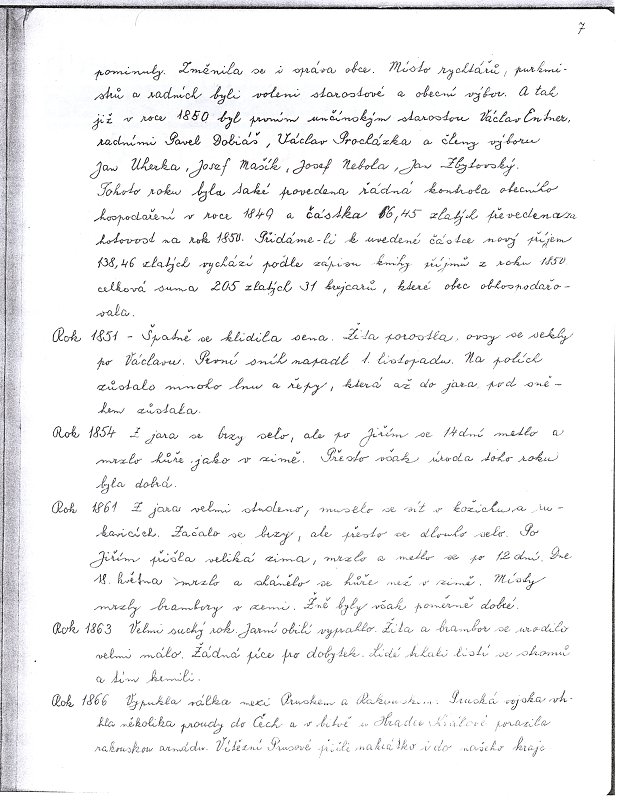 7
pominuly. Změnila se i správa obce. Místo rychtářů, purkmi-
strů a radních byli voleni starostové a obecní výbor. A tak
již v roce 1850 byl prvním unčínským starostou Václav Entner,
radními Pavel Dobiáš, Václav Procházka a členy výboru
Jan Uherka, Josef Mašík, Josef Nebola, Jan Zbytovský.
Tohoto roku byla také provedena řádná kontrola obecního
hospodaření v roce 1849 a částka 66,45 zlatých převedena za
hotovost na rok 1850. Přidáme-li k uvedené částce nový příjem
138,46 zlatých vychází podle zápisu knihy příjmů z roku 1850
celková suma 205 zlatých 31 krejcarů, které obec obhospodařo-
vala.
Rok 1851 - Špatně se klidila sena. Žita porostla, ovsy se sekly
po Václavu. První sníh napadl 1. listopadu. Na polích
zůstalo mnoho lnu a řepy, která až do jara pod sně-
hem zůstala.
Rok 1854 Z jara se brzy selo, ale po Jiřím se 14 dní metlo a
mrzlo hůře jako v zimě. Přesto však úroda toho roku
byla dobrá.
Rok 1861 Z jara velmi studeno, muselo se sít v kožichu a ru-
kavicích. Začalo se brzy, ale přesto se dlouho selo. Po
Jiřím přišla veliká zima, mrzlo a metlo se po 12 dní. Dne
18. května mrzlo a shánělo se hůře než v zimě. Místy
mrzly brambory v zemi. Žně byly však poměrně dobré.
Rok 1863 Velmi suchý rok. Jarní obilí vyprahlo. Žita a brambor se urodilo
velmi málo. Žádná píce pro dobytek. Lidé trhali listí se stromů
a tím krmili.
Rok 1866 Vypukla válka mezi Pruskem a Rakouskem. Pruská vojska vtr-
hla několika proudy do Čech a v bitvě u Hradce Králové porazila
rakouskou armádu. Vítězní Prusové přišli nakrátko i do našeho kraje